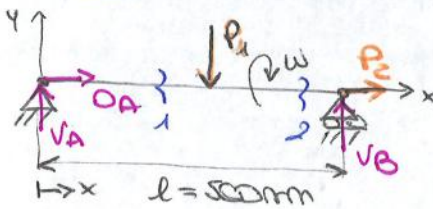 Y
P₁
ω
P₂
O_A
x
1
2
V_A
V_B
x
l = 500mm